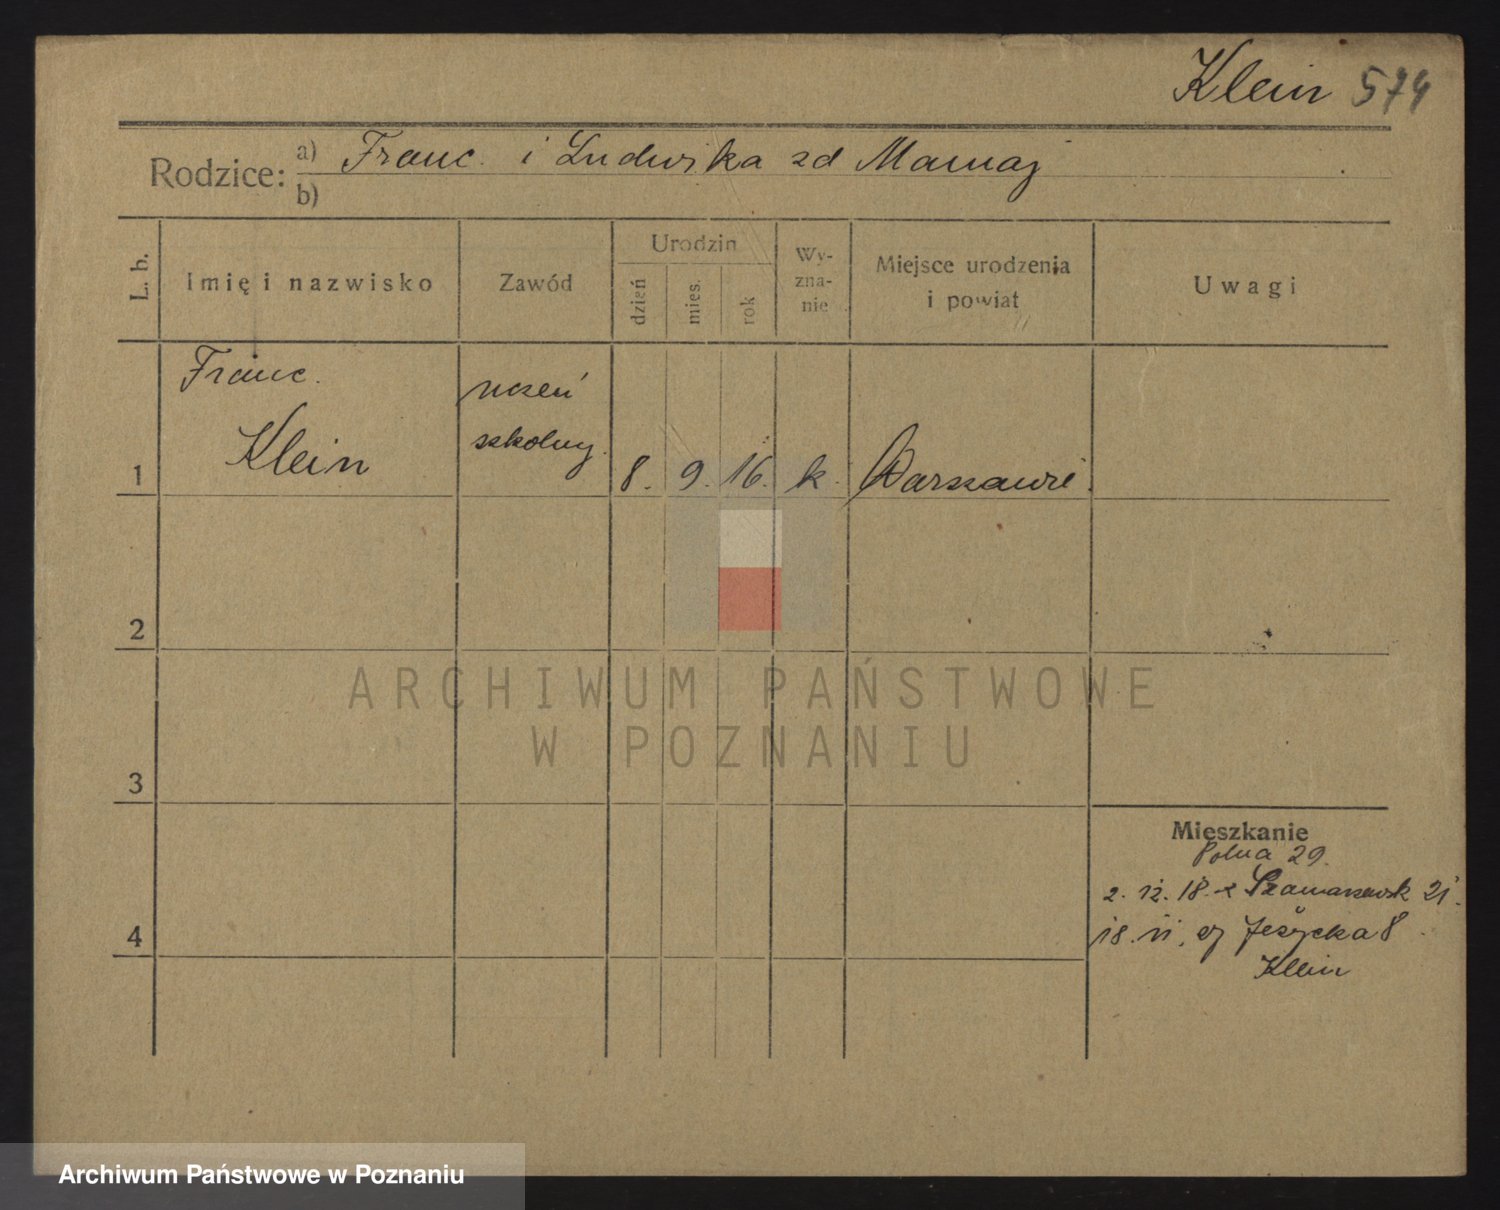 Klein 574
Rodzice: a) Franc. i Ludwika zd Mamaj
b)
L. b. Imię i nazwisko Zawód Urodzin dzień mies. rok Wyznanie Miejsce urodzenia i powiat Uwagi
Franc. uczeń
1 Klein szkolny 8. 9. 16. k. Warszawie
2
3
4
Mieszkanie
Polna 29.
2. 12. 18. Szamarzewsk 21.
18. 11. Jeżycka 8
Klein
ARCHIWUM PAŃSTWOWE
W POZNANIU
Archiwum Państwowe w Poznaniu